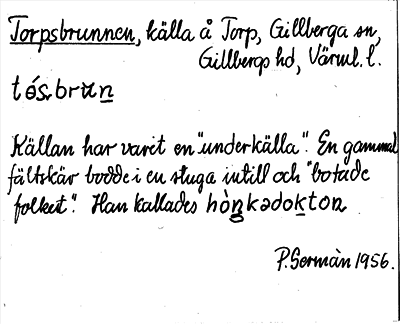 Torpsbrunnen, källa å Torp, Gillberga sn,
Gillbergs hd, Värml. l.
tós.brun
Källan har varit en "underkälla". En gammal
fältskär bodde i en stuga intill och "botade
folket". Han kallades hòŋkədokton
P. Sermàn 1956.